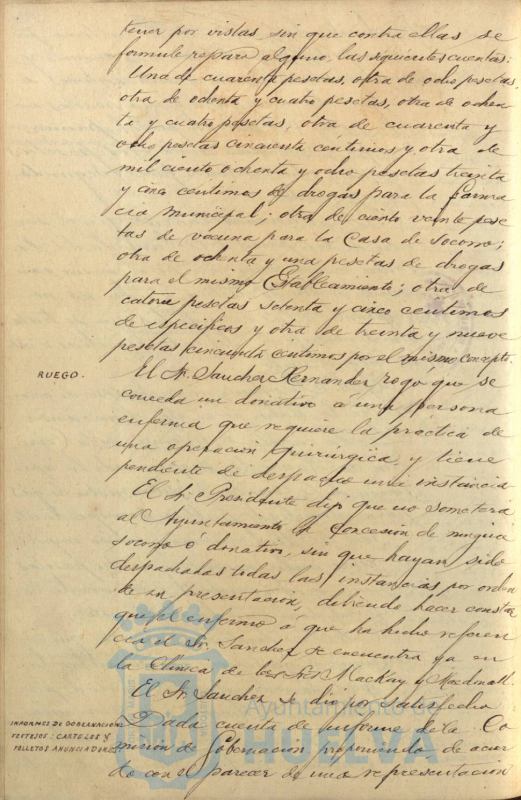 tener por vistas, sin que contra ellas se
formule reparo alguno, las siguientes cuentas:
Una de cuarenta pesetas, otra de ocho pesetas,
otra de ochenta y cuatro pesetas, otra de ochen
ta y cuatro pesetas, otra de cuarenta y
ocho pesetas cincuenta céntimos y otra de
mil ciento ochenta y ocho pesetas treinta
y cinco centimos de drogas para la farma
cia municipal; otra de ciento veinte pese
tas de vacuna para la Casa de Socorro;
otra de ochenta y una pesetas de drogas
para el mismo Establecimiento; otra de
catorce pesetas setenta y cinco centimos
de específicos y otra de treinta y nueve
pesetas cincuenta centimos por el mismo concepto.
RUEGO.
El Sr. Sanchez Hernandez rogo que se
conceda un donativo á una persona
enferma que requiere la practica de
una operación quirúrgica, y tiene
pendiente de despacho una instancia
El Sr. Presidente dijo que no someterá
al Ayuntamiento la concesión de ningun
socorro ó donativo, sin que hayan sido
despachadas todas las instancias por orden
de su presentación, debiendo hacer constar
que el enfermo á que ha hecho referen
cia el Sr. Sanchez se encuentra ya en
la Clínica de los Sres. MacKay y Macdonall.
El Sr. Sanchez se dio por satisfecho
INFORMES DE GOBERNACION
FESTEJOS: CARTELES Y
FOLLETOS ANUNCIADORES
Dada cuenta de informe de la Co
misión de Gobernacion proponiendo de acuer
do con el parecer de una representación
Ayuntamiento de
HUELVA